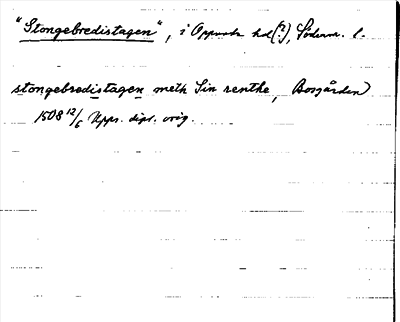 "Stongebredistagen", i Oppunda hd (?), Söderm. l.
stongebredistagen meth Sin renthe, Bosgården)
1508 12/6 Upps. dipl. orig.